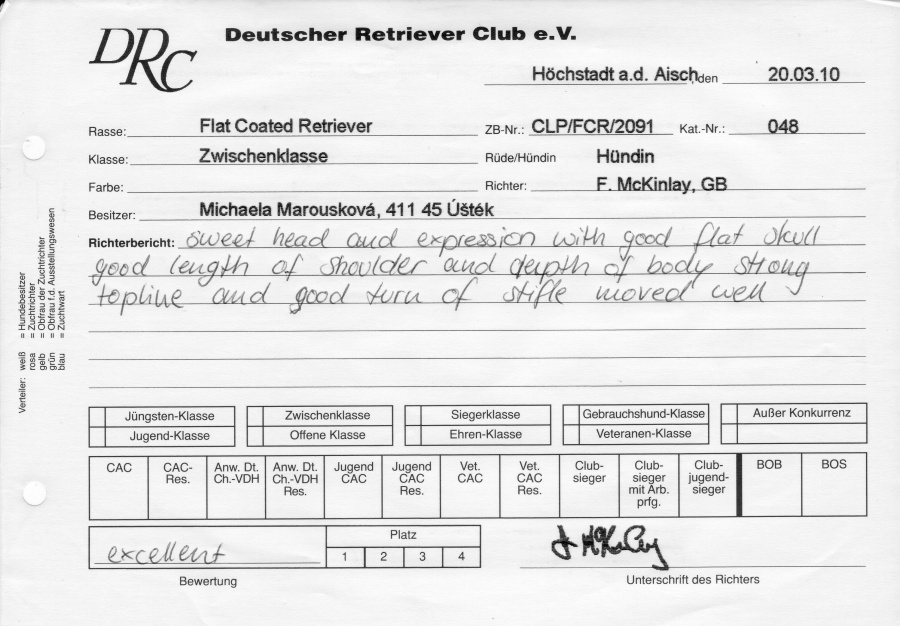 DRC
Deutscher Retriever Club e.V.
Höchstadt a.d. Aisch, den 20.03.10
Rasse: Flat Coated Retriever ZB-Nr.: CLP/FCR/2091 Kat.-Nr.: 048
Klasse: Zwischenklasse Rüde/Hündin Hündin
Farbe: Richter: F. McKinlay, GB
Besitzer: Michaela Marousková, 411 45 Úštěk
Richterbericht: sweet head and expression with good flat skull
good length of shoulder and depth of body strong
topline and good turn of stifle moved well
Verteiler: weiß = Hundebesitzer
rosa = Zuchtrichter
gelb = Obfrau der Zuchtrichter
grün = Obfrau f.d. Ausstellungswesen
blau = Zuchtwart
Jüngsten-Klasse Zwischenklasse Siegerklasse Gebrauchshund-Klasse Außer Konkurrenz
Jugend-Klasse Offene Klasse Ehren-Klasse Veteranen-Klasse
CAC CAC- Anw. Dt. Anw. Dt. Jugend Jugend Vet. Vet. Club- Club- Club- BOB BOS
Res. Ch.-VDH Ch.-VDH CAC CAC CAC CAC sieger sieger jugend-
Res. Res. Res. mit Arb. sieger
prfg.
excellent Platz
1 2 3 4
Bewertung Unterschrift des Richters